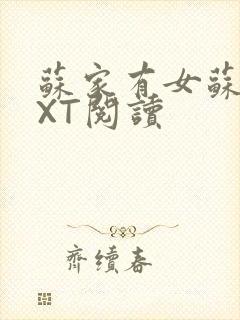 蘇家有女蘇
XT閱讀
齊續春